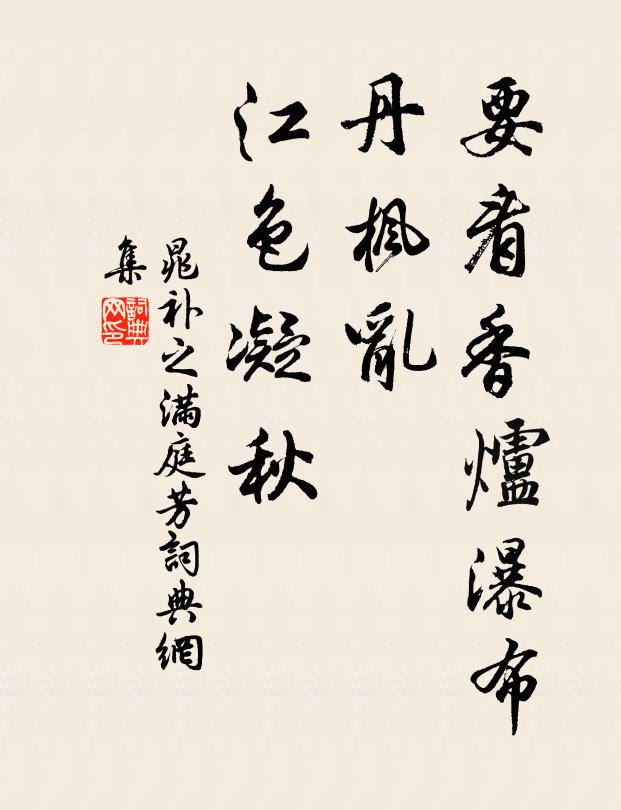 要看香爐瀑布
丹楓亂
江色凝秋
晁補之滿庭芳詞典網
集
詞典
网印